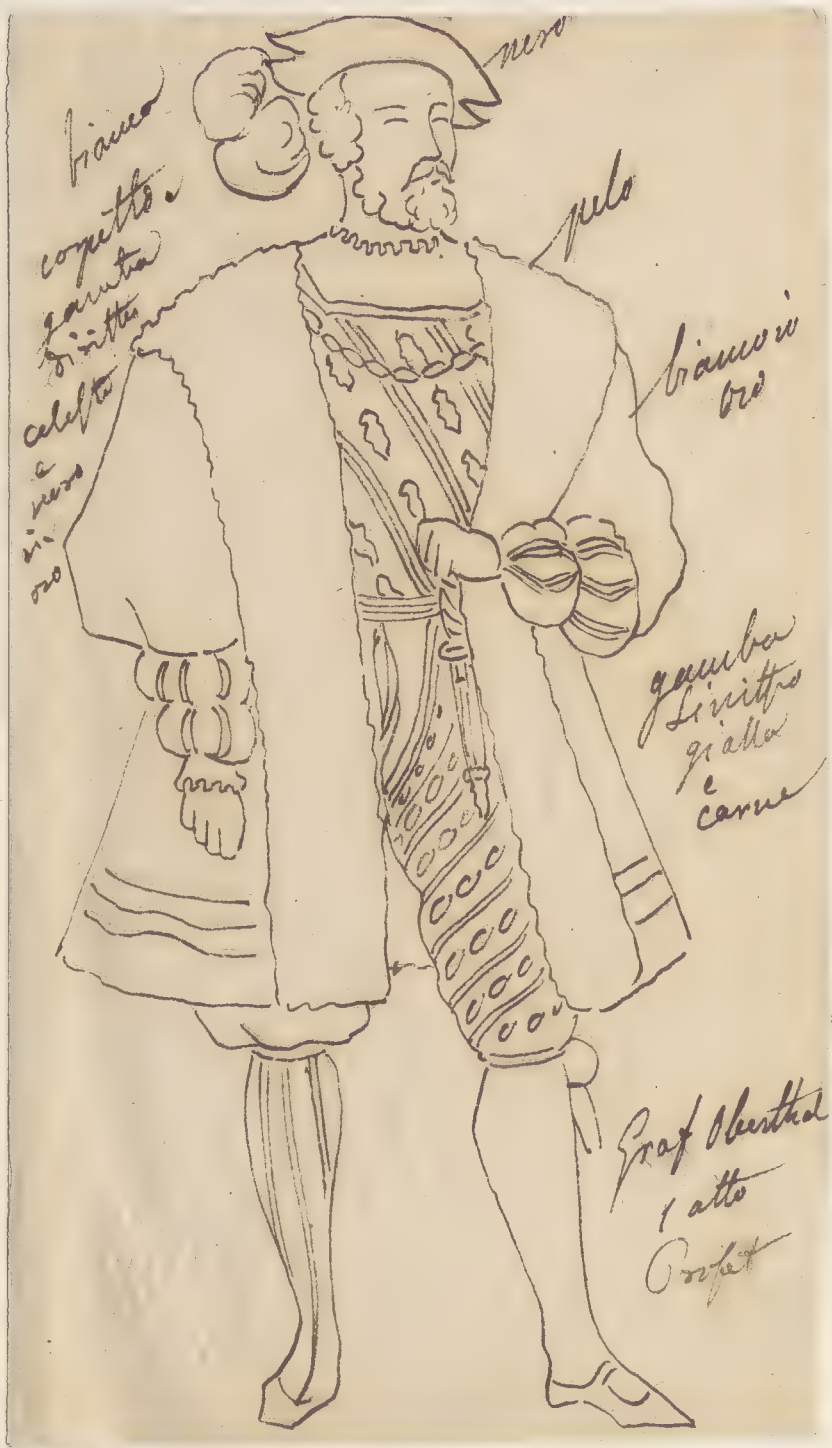 nero
bianco
corpetto.
gamba
diritta
celeste
e
nero
in
oro
pelo
bianco in
oro
gamba
sinistra
gialla
e
carne
Graf Oberthal
1 atto
Profet